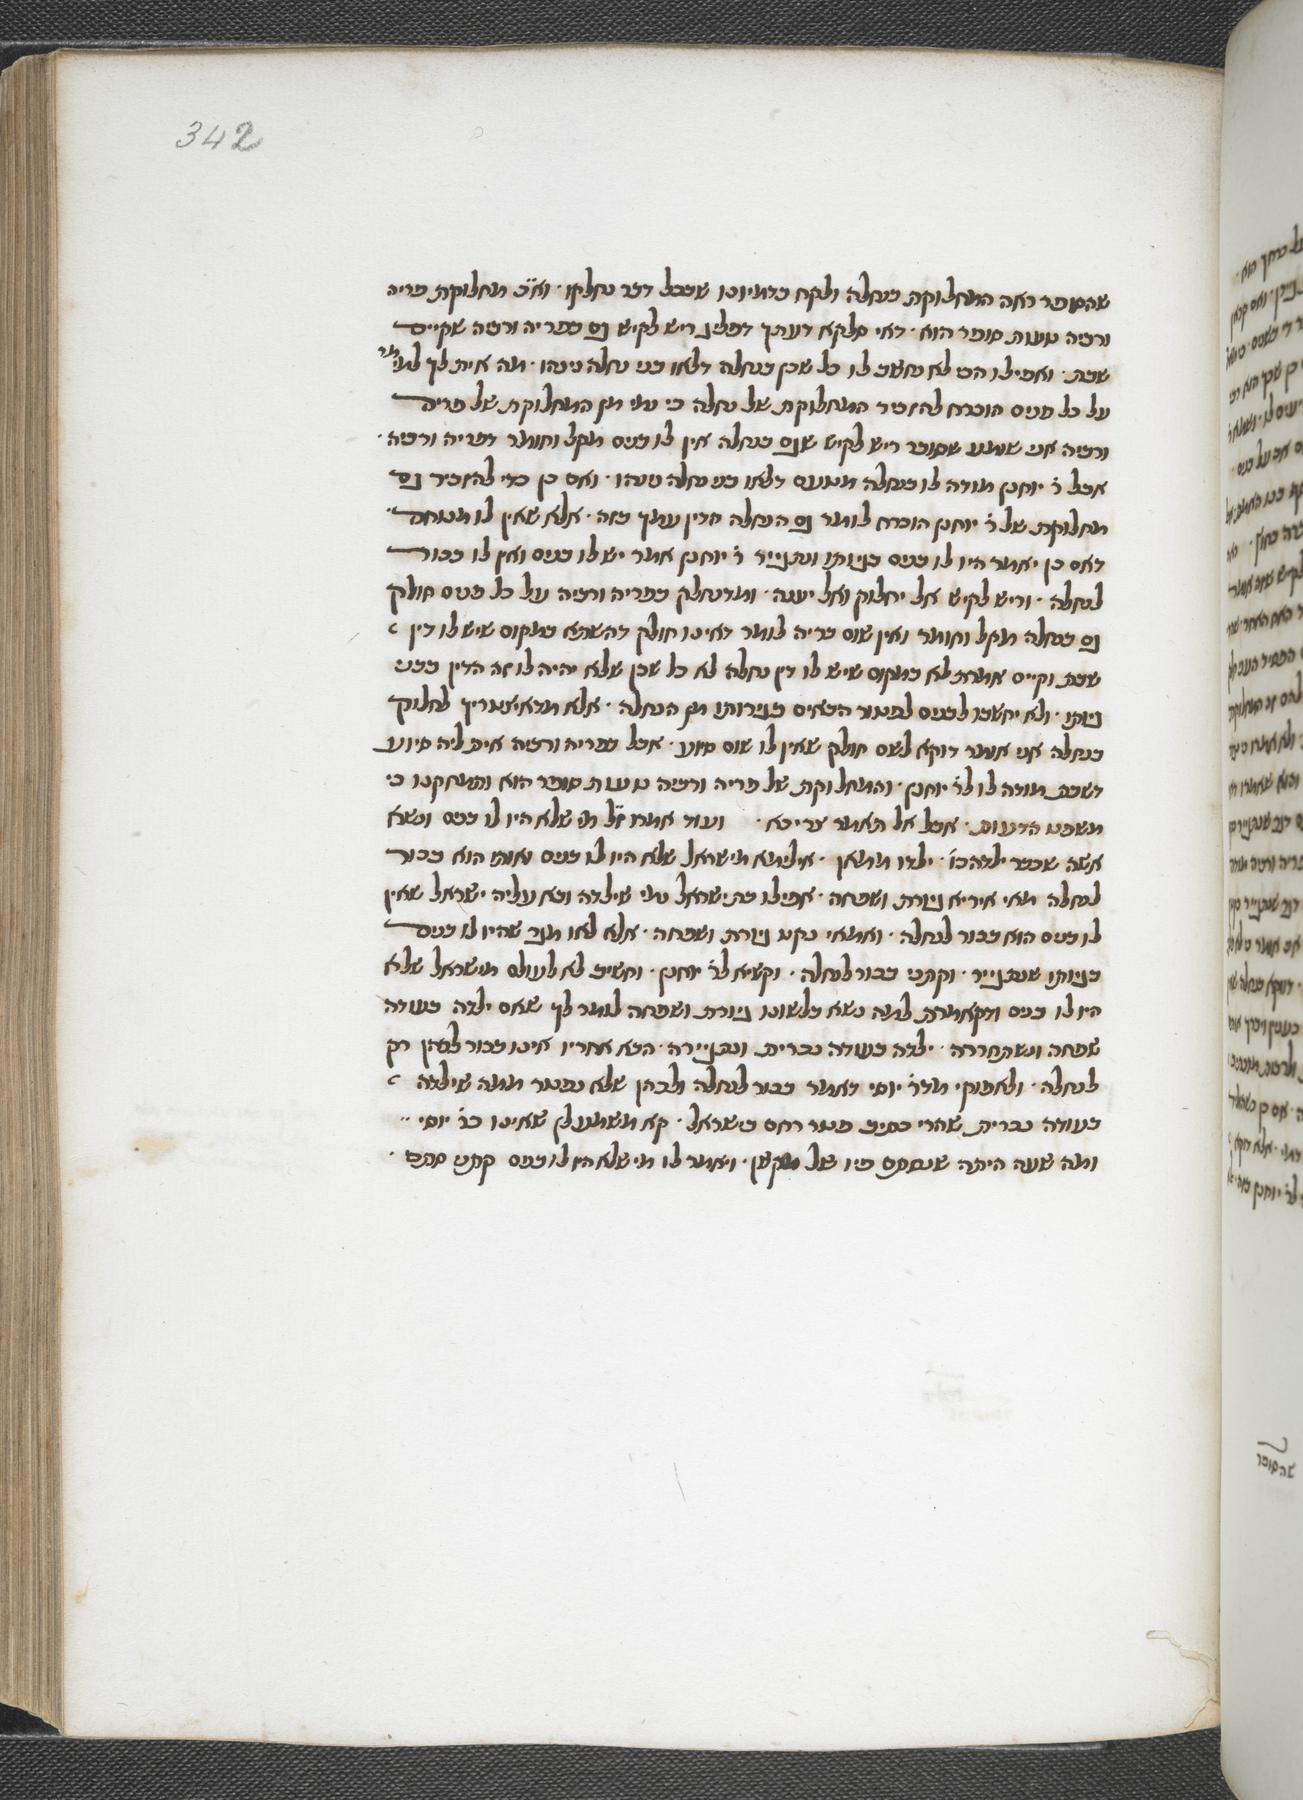 342
שהסופר ראה המחלוקת בנחלה ולקח בדמיונו שבכל דבר נחלקו · וא״כ מחלוקת פריה
ורביה טעות סופר הוא · דאי סלקא דעתך דפליג ריש לקיש גם בפריה ורביה שקיים
שבת · ואפילו הכי לא נחשב לו כל שכן בנחלה דלאו בני נחלה נינהו · מה אית לך למי
על כל פנים הוכרח להזכיר המחלוקת של נחלה כי טפי מן המחלוקת של פריה
ורביה אני שומע שסובר ריש לקיש שגם בנחלה אין לו בנים מקל וחומר דפריה ורביה ·
אבל ר׳ יוחנן מודה לו בנחלה מטעם דלאו בני נחלה נינהו · ואם כן כדי להזכיר גם
מחלוקת של ר׳ יוחנן הוכרח לומר גם הנחלה חדין ערוך בזה · אלא שאין לו מנוחה ·
דאם כן יאמר היו לו בנים בגיותו ונתגייר ר׳ יוחנן אמר יש לו בנים ואין לו בכור
לנחלה · וריש לקיש אל יחלוק ואל יענה · ומדנחלק בפריה ורביה על כל פנים חולק
גם בנחלה מקל וחומר ואין שום בריה לומר דאינו חולק דהשתא במקום שיש לו דין
שבת וקיים אמרת לא במקום שיש לו דין נחלה לא כל שכן שלא יהיה לו זה הדין בבני
גיותו · ולא יחשבו לבנים לפטור הבאים בגירותו מן הנחלה · אלא מדאיצטריך לחלוק
בנחלה אני אומר דוקא לשם חולק שאין לו שום סיוע · אבל בפריה ורביה אית ליה סיוע
דשבת מודה לו לר׳ יוחנן · והמחלוקת של פריה ורביה טעות סופר הוא והמחקנו כי
משפט הדעות · אבל אל תאמר צריכא · ועוד אמרו ז״ל מי שלא היו לו בנים ונשא
אשה שכבר ילדה כו׳ · ילדו ממאן · אילימא מישראל שלא היו לו בנים ואותו הוא בכור
לנחלה מאי איריא גיורת ושפחה · אפילו בת ישראל נמי שילדה ובא עליה ישראל שאין
לו בנים הוא בכור לנחלה · ואמאי נקט גיורת ושפחה · אלא לאו מגר שהיו לו בנים
בגיותו שנתגייר · וקתני בכור לנחלה · וקשיא לר׳ יוחנן · וחשיב לא לעולם מישראל שלא
היו לו בנים ודקאמרת למה נשא בלשונו גיורת ושפחה לומר לך שאם ילדה בעודה
שפחה ונשתחררה · ילדה בעודה נכרית ונתגיירה · הבא אחריו אינו בכור לכהן רק
לנחלה · ולאפוקי מדר׳ יוסי דאמר בכור לנחלה ולכהן שלא נפטר ממה שילדה
בעודה נכרית שהרי כתיב פטר רחם בישראל · קא משמע לן שאינו כר׳ יוסי ··
ומה שעה היתה שנסתם פיו של מקשן · ויאמר לו מי שלא היו לו בנים קתני סתם ·